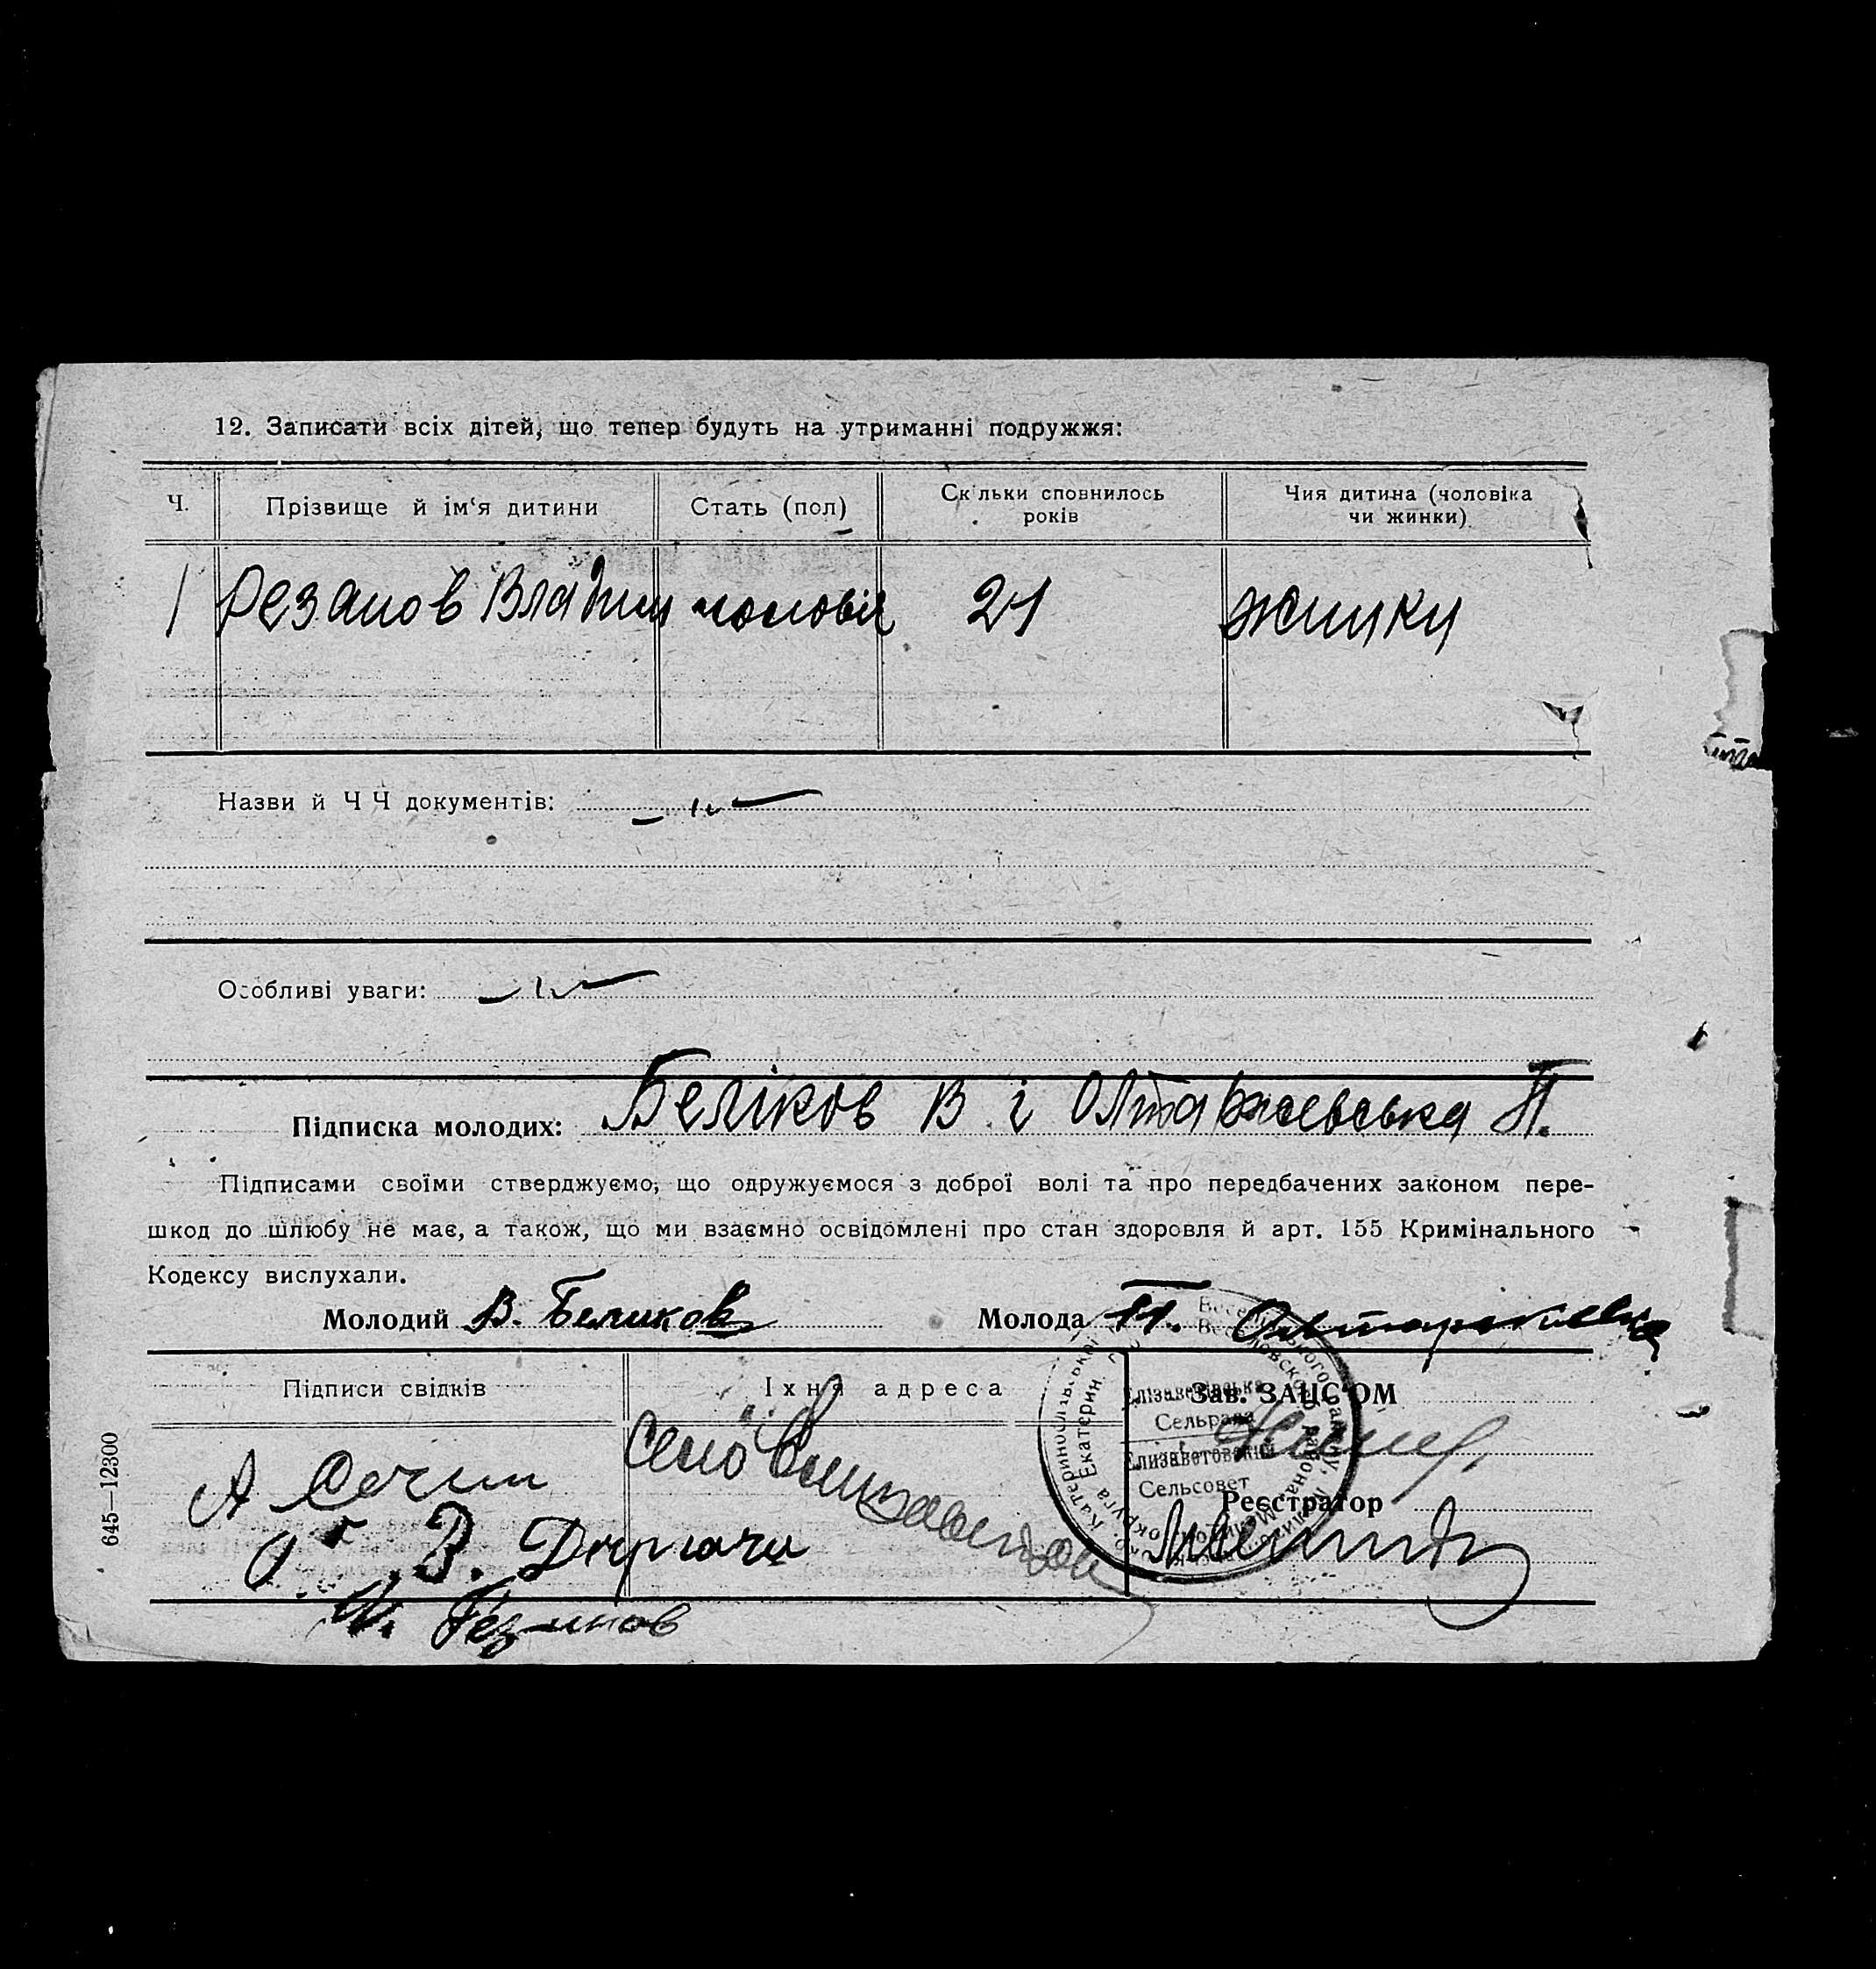 12. Записати всіх дітей, що тепер будуть на утриманні подружжя:
Ч. Прізвище й ім'я дитини Стать (пол) Скільки сповнилось років Чия дитина (чоловіка чи жинки)
1 Резанов Владим 21 жинки
Назви й Ч Ч документів:
Особливі уваги:
Підписка молодих: Беліков В і П.
Підписами своїми стверджуємо, що одружуємося з доброї волі та про передбачених законом пере-
шкод до шлюбу не має, а також, що ми взаємно освідомлені про стан здоровля й арт. 155 Кримінального
Кодексу вислухали.
Молодий В. Беликов Молода П.
Підписи свідків Їхня адреса Зав. ЗАЦС'ОМ
Сельрада
Елизаветовский
Сельсовет
Реєстратор
А
село
З.
Резанов
645—12300